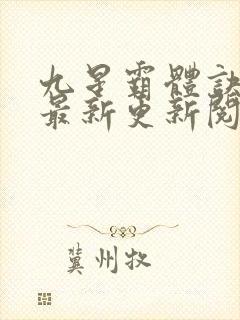 九星霸體訣
最新更新閱
冀州牧